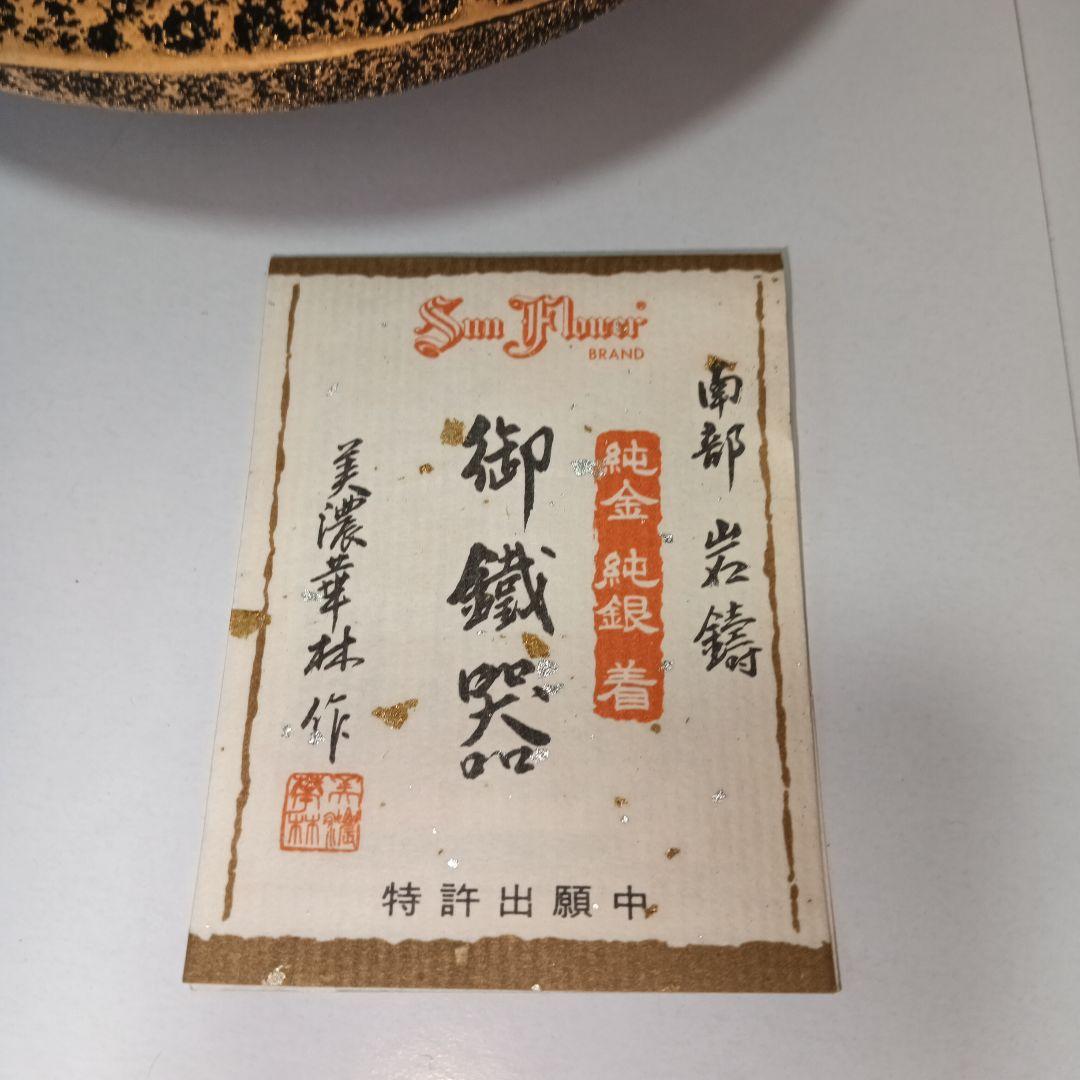 Sun Flower
BRAND
南部 岩鑄
純金 純銀 着
御鐵器
美濃華林作
美濃
華林
特許出願中